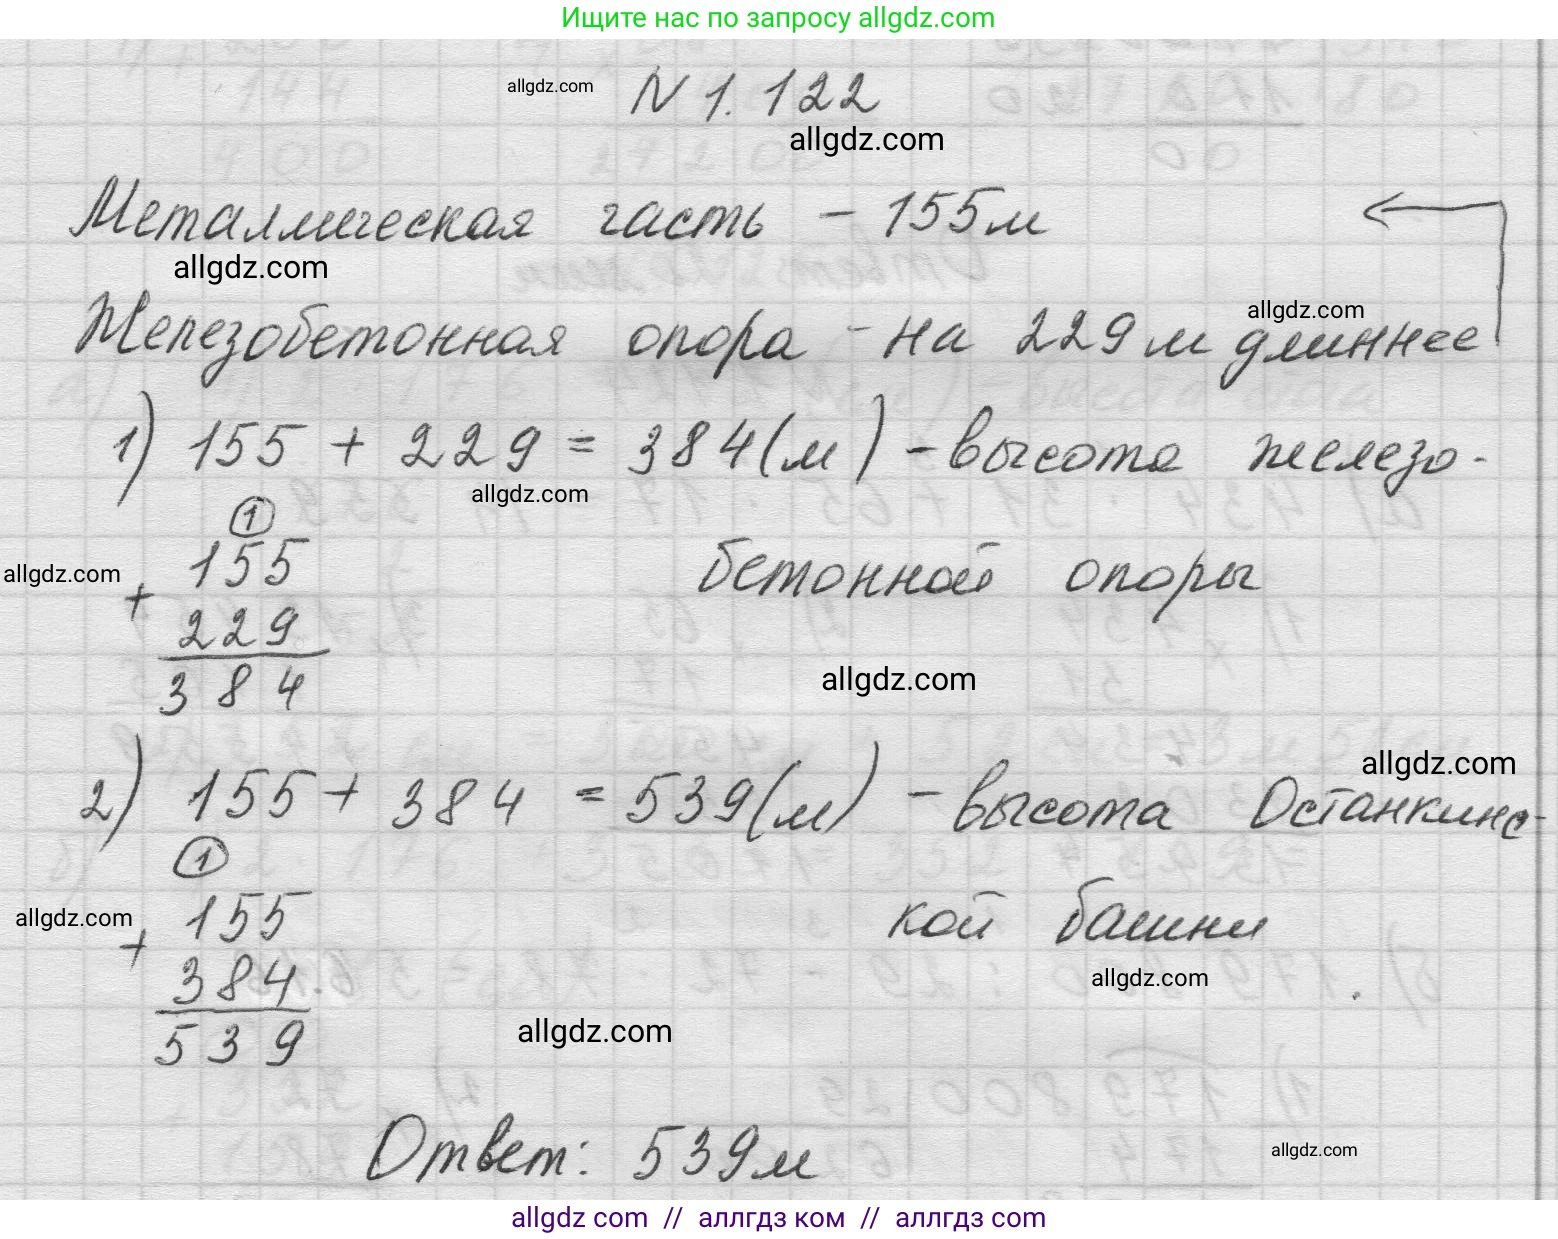 Ищите нас по запросу allgdz.com
allgdz.com
N 1.122
allgdz.com
Металлическая часть - 155м
allgdz.com
allgdz.com
Железобетонная опора - на 229м длиннее
1) 155 + 229 = 384(м) - высота железо-
allgdz.com
1
155
allgdz.com
+
бетонной опоры
229
384
allgdz.com
allgdz.com
2) 155 + 384 = 539(м) - высота Останкинс-
1
155
allgdz.com
+
кой башни
384
allgdz.com
539
allgdz.com
Ответ: 539м
allgdz.com
allgdz com // аллгдз ком // аллгдз com